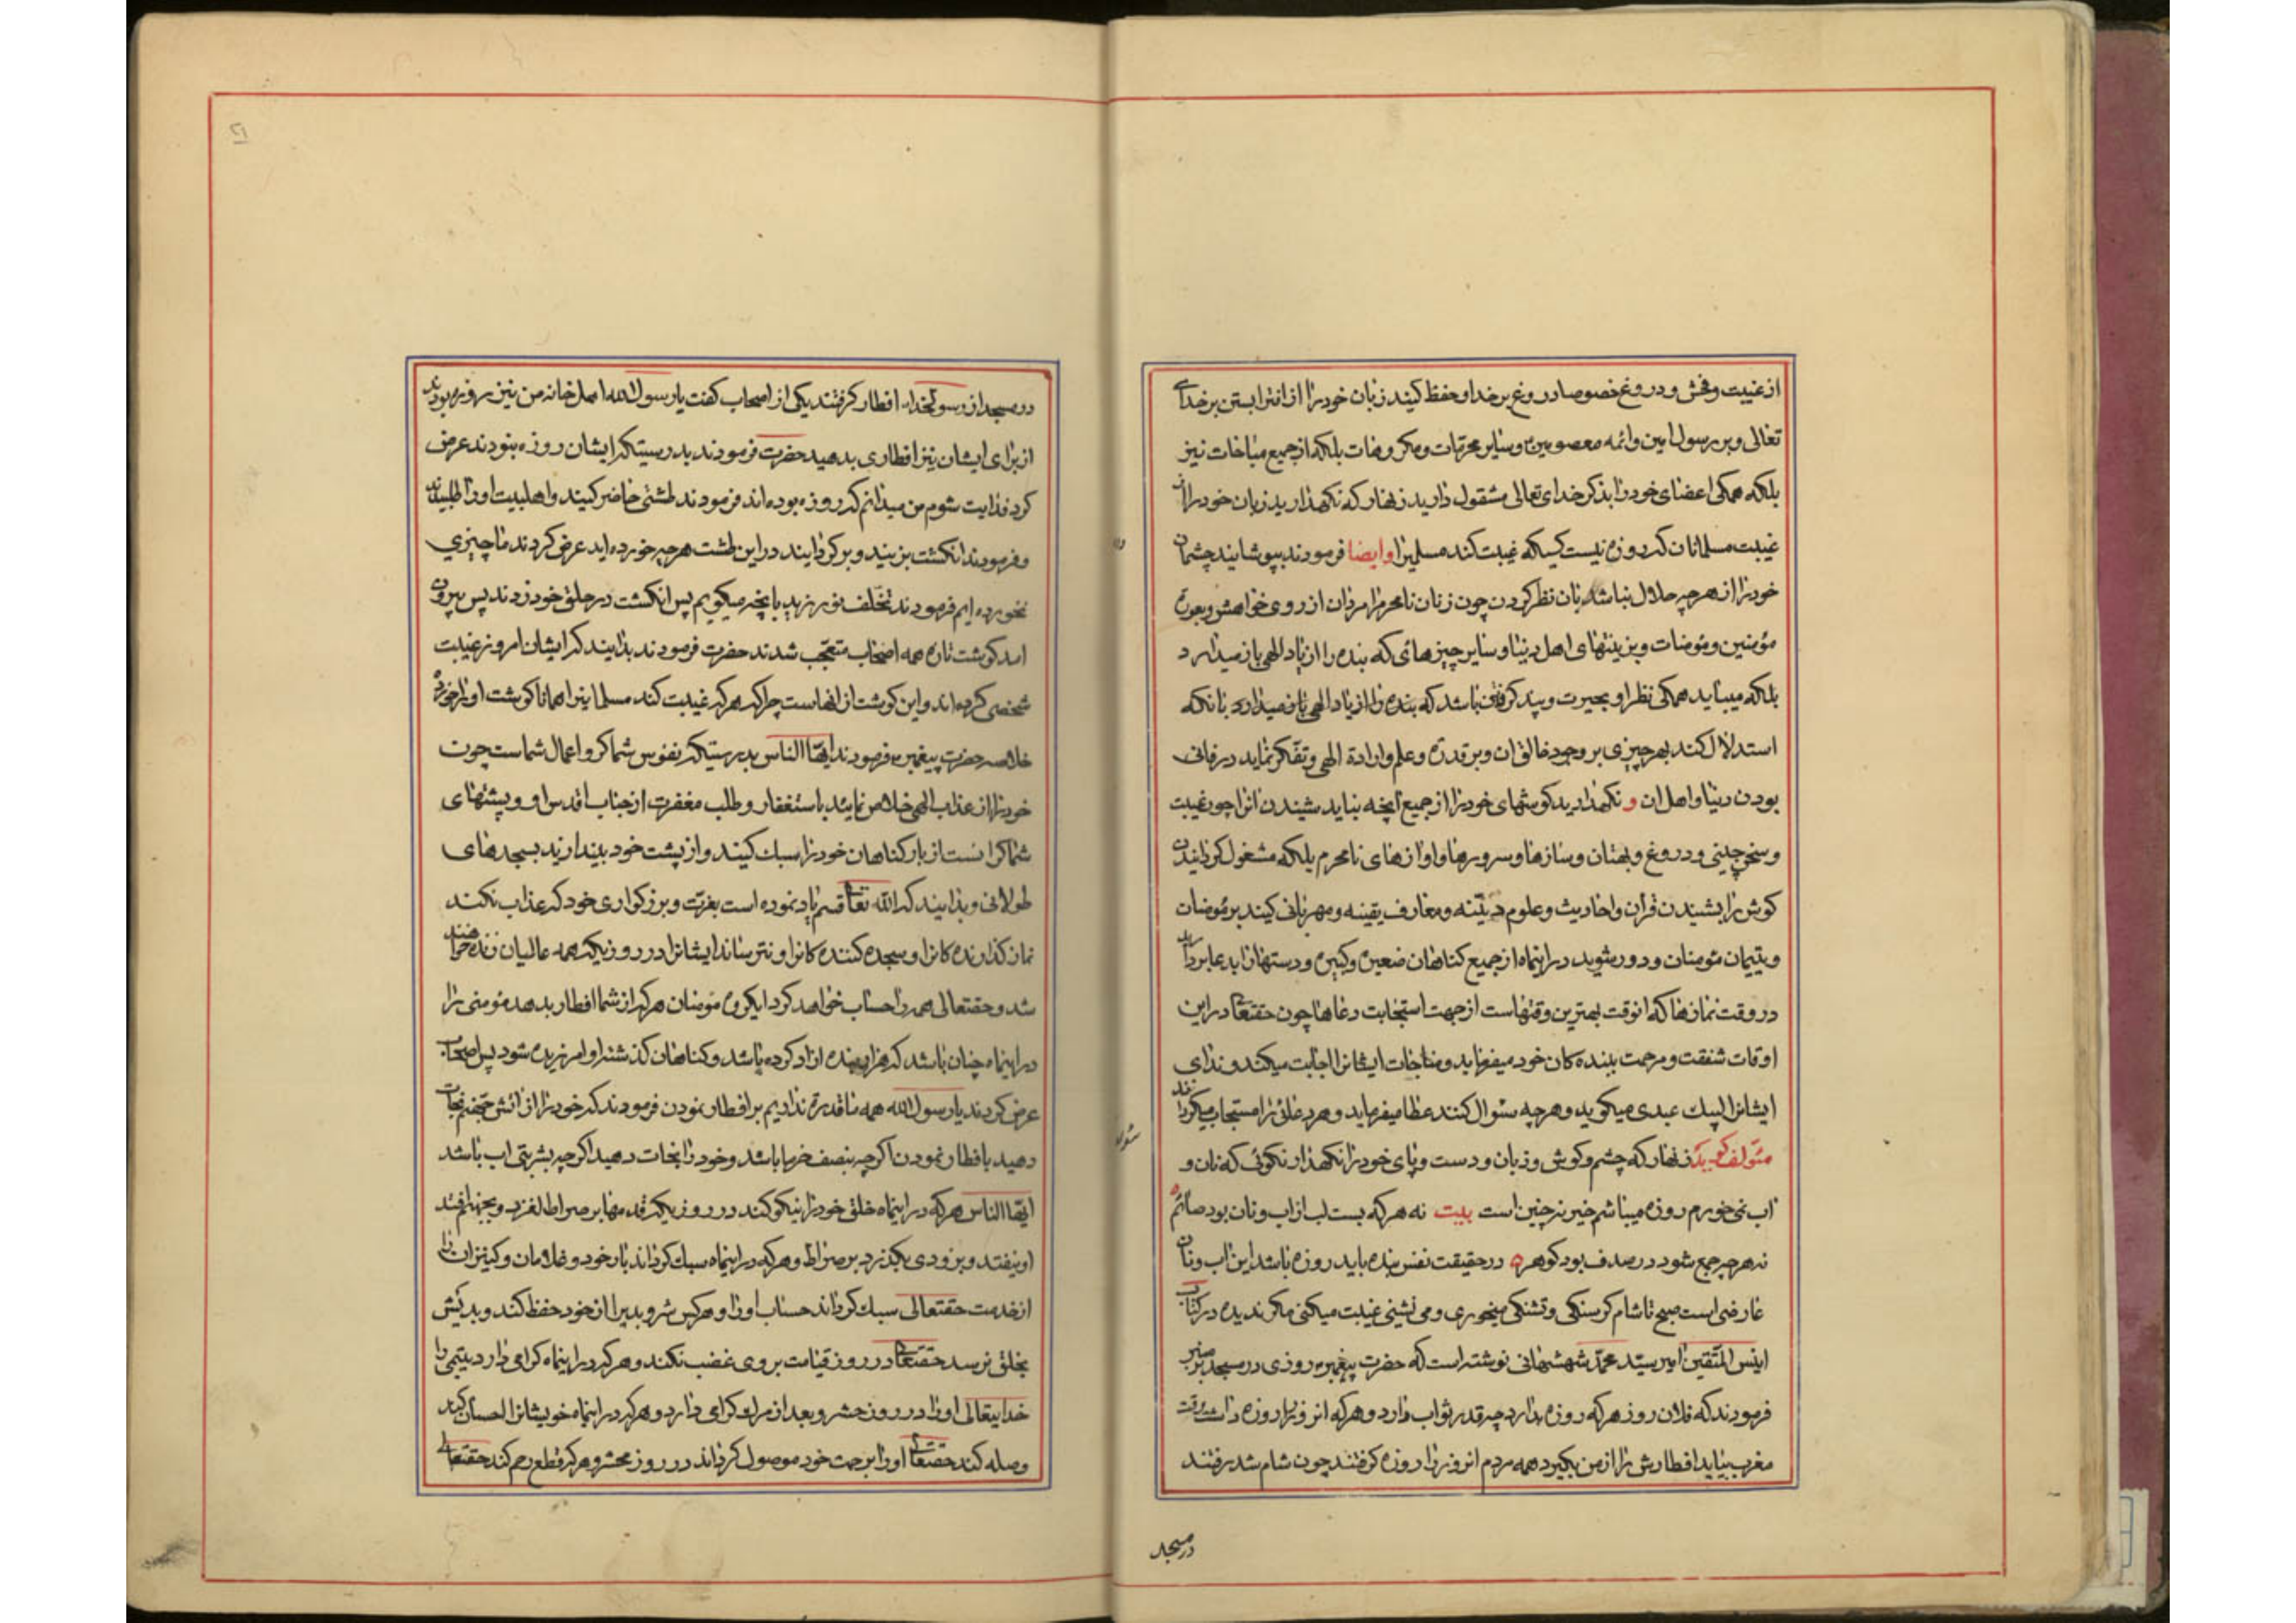 از غیبت و فحش و دروغ خصوصا دروغ بر خدا و حفظ کنید زبان خود را از افترا بستن بر خدای
تعالی و بر رسول امین و ائمه معصومین و سایر محرمات و مکروهات بلکه از جمیع مباحات نیز
بلکه همکی اعضای خود را بذکر خدای تعالی مشقول دارید زنهار که نکهدارید زبان خود را از
غیبت مسلمانان که روزه نیست کسیکه غیبت کند مسلمیرا و ایضا فرمودند بپوشانید چشمان
خود را از هر چه حلال نباشد بان نظر کردن چون زنان نامحرم را مردان از روی خواهش و بعورة
مؤمنین و مؤمنات و بزینتهای اهل دنیا و سایر چیزهائی که بنده را از یاد الهی باز میدارد
بلکه میباید همکی نظر او بحیرت و پند کرفتن باشد که بنده را از یاد الهی باز میدارد بانکه
استدلال کند بهر چیزی بر وجود خالق ان و بر قدرة و علم و ارادة الهی و تفکر نماید در فانی
بودن دنیا و اهل ان و نکهدارید کوشهای خود را از جمیع آنچه نباید شیندن انرا چون غیبت
و سخن چینی و دروغ و بهتان و سازها و سرورها و اوازهای نامحرم بلکه مشغول کردانیدن
کوش را بشیندن قران و احادیث و علوم دینیه و معارف یقینه و مهربانی کنید بر مؤمنان
و یتیمان مؤمنان و دور شوید در اینماه از جمیع کناهان صغیره و کبیره و دستها را بدعا بردارید
در وقت نمازها که انوقت بهترین وقتهاست از جهت استجابت دعاها چون حقتعالی در این
اوقات شفقت و مرحمت ببنده کان خود میفرماید و مناجات ایشانرا اجابت میکند و ندای
ایشانرا لبیک عبدی میکوید و هر چه سئوال کنند عطا میفرماید و هر دعائی را مستجاب میکرداند
مئولف کوید زنهار که چشم و کوش و زبان و دست و پای خود را نکهدار نکوئی که نان و
آب نمی خورم روزه میباشم خیر نه چنین است بیت نه هر که بست لب از اب و نان بود صائم
نه هر چه جمع شود در صدف بود کوهر در حقیقت نفس بنده باید روزه باشد این اب و نان
عارضی است صبح تا شام کرسنکی و تشنکی میخوری و می نشینی غیبت میکنی مکر ندیده در کتاب
انیس المتقین امیر سید محمد شهشهانی نوشته است که حضرت پیغمبر روزی در مسجد بر منبر
فرمودند که فلان روز هر که روزه بدارد چه قدر ثواب دارد و هر که انروز را روزه داشت وقت
مغرب بیاید افطارش را از من بکیرد همه مردم انروز را روزه کرفتند چون شام شد رفتند
در مسجد
در مسجد از رسولخدا افطار کرفتند یکی از اصحاب کفت یا رسول الله اهل خانه من نیز روزه بودند
از برای ایشان نیز افطاری بدهید حضرت فرمودند بدرستیکه ایشان روزه نبودند عرض
کرد فدایت شوم من میدانم که روزه بوده اند فرمودند طشتی حاضر کنید و اهلبیت او را طلبیدند
و فرمودند انکشت بزنید و بر کردانید در این طشت هر چه خورده اید عرض کردند ما چیزی
نخورده ایم فرمودند تخلف نورزید بانچه میکویم پس انکشت در حلق خود زدند پس بیرون
امد کوشت تازه همه اصحاب متعجب شدند حضرت فرمودند بدانید که ایشان امروز غیبت
شخصی کرده اند و این کوشت از انهاست چرا که هر که غیبت کند مسلمانیرا همانا کوشت او را خورده
خلاصه حضرت پیغمبر فرمودند ایها الناس بدرستیکه نفوس شما کرو اعمال شماست چون
خود را از عذاب الهی خلاص نمائید باستغفار و طلب مغفرت از جناب اقدس او و پشتهای
شما کرانست از بار کناهان خود را سبک کنید و از پشت خود بیندازید بسجدهای
طولانی و بدانید که الله تعالی قسم یاد نموده است بعزت و بزرکواری خود که عذاب نکند
نماز کذارنده کانرا و سجده کننده کانرا و نترساند ایشانرا در روزیکه همه عالمیان زنده خواهند
شد و حقتعالی همه را حساب خواهد کرد ایکروه مؤمنان هر که از شما افطار بدهد مؤمنی را
در اینماه چنان باشد که هزار بنده ازاد کرده باشد و کناهان کذشته او امرزیده شود پس اصحاب
عرض کردند یا رسول الله همه ما قدرة نداریم بر افطار نمودن فرمودند که خود را از اتش جهنم نجات
دهید بافطار نمودن اکر چه بنصف خرما باشد و خود را نجات دهید اکر چه بشربتی اب باشد
ایها الناس هر که در اینماه خلق خود را نیکو کند در روزیکه قدمها بر صراط لغزد و بجهنم افتد
او نیفتد و بزودی بکذرد بر صراط و هر که در اینماه سبک کرداند بار خود و غلامان و کنیزان را
از خدمت حقتعالی سبک کرداند حساب او را و هر کس شر و بدیرا از خود حفظ کند و بدیش
بخلق نرسد حقتعالی در روز قیامت بر وی غضب نکند و هر که در اینماه کرامی دارد یتیمی را
خدایتعالی او را در روز حشر و بعد از مرک کرامی دارد و هر که در اینماه خویشانرا احسان کند
وصله کند حقتعالی او را برحمت خود موصول کرداند در روز محشر و هر که قطع رحم کند حقتعالی